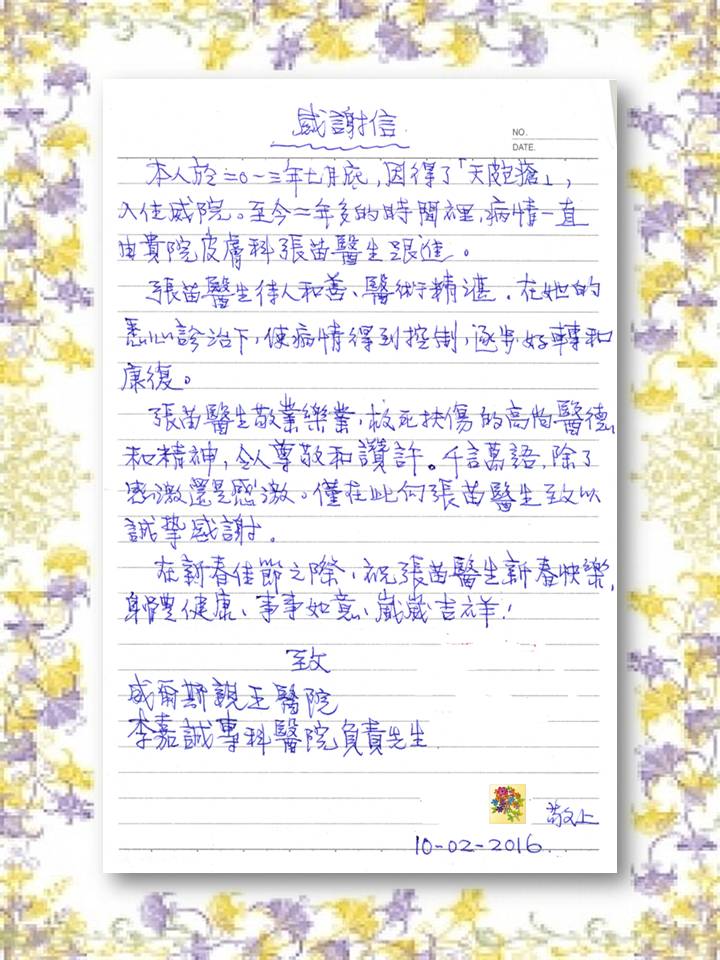 感謝信
NO.
DATE.
本人於二０一三年七月底，因得了「天皰瘡」，
入住威院。至今二年多的時間裡，病情一直
由貴院皮膚科張苗醫生跟進。
張苗醫生待人和善、醫術精湛．在她的
悉心診治下，使病情得到控制，逐步好轉和
康復。
張苗醫生敬業樂業，救死扶傷的高尚醫德
和精神，令人尊敬和讚許。千言萬語，除了
感激還是感激。僅在此向張苗醫生致以
誠摯感謝．
在新春佳節之際、祝張苗醫生新春快樂，
身體健康、事事如意、歲歲吉祥！
致
威爾斯親王醫院
李嘉誠專科醫院負責先生
敬上
10-02-2016.